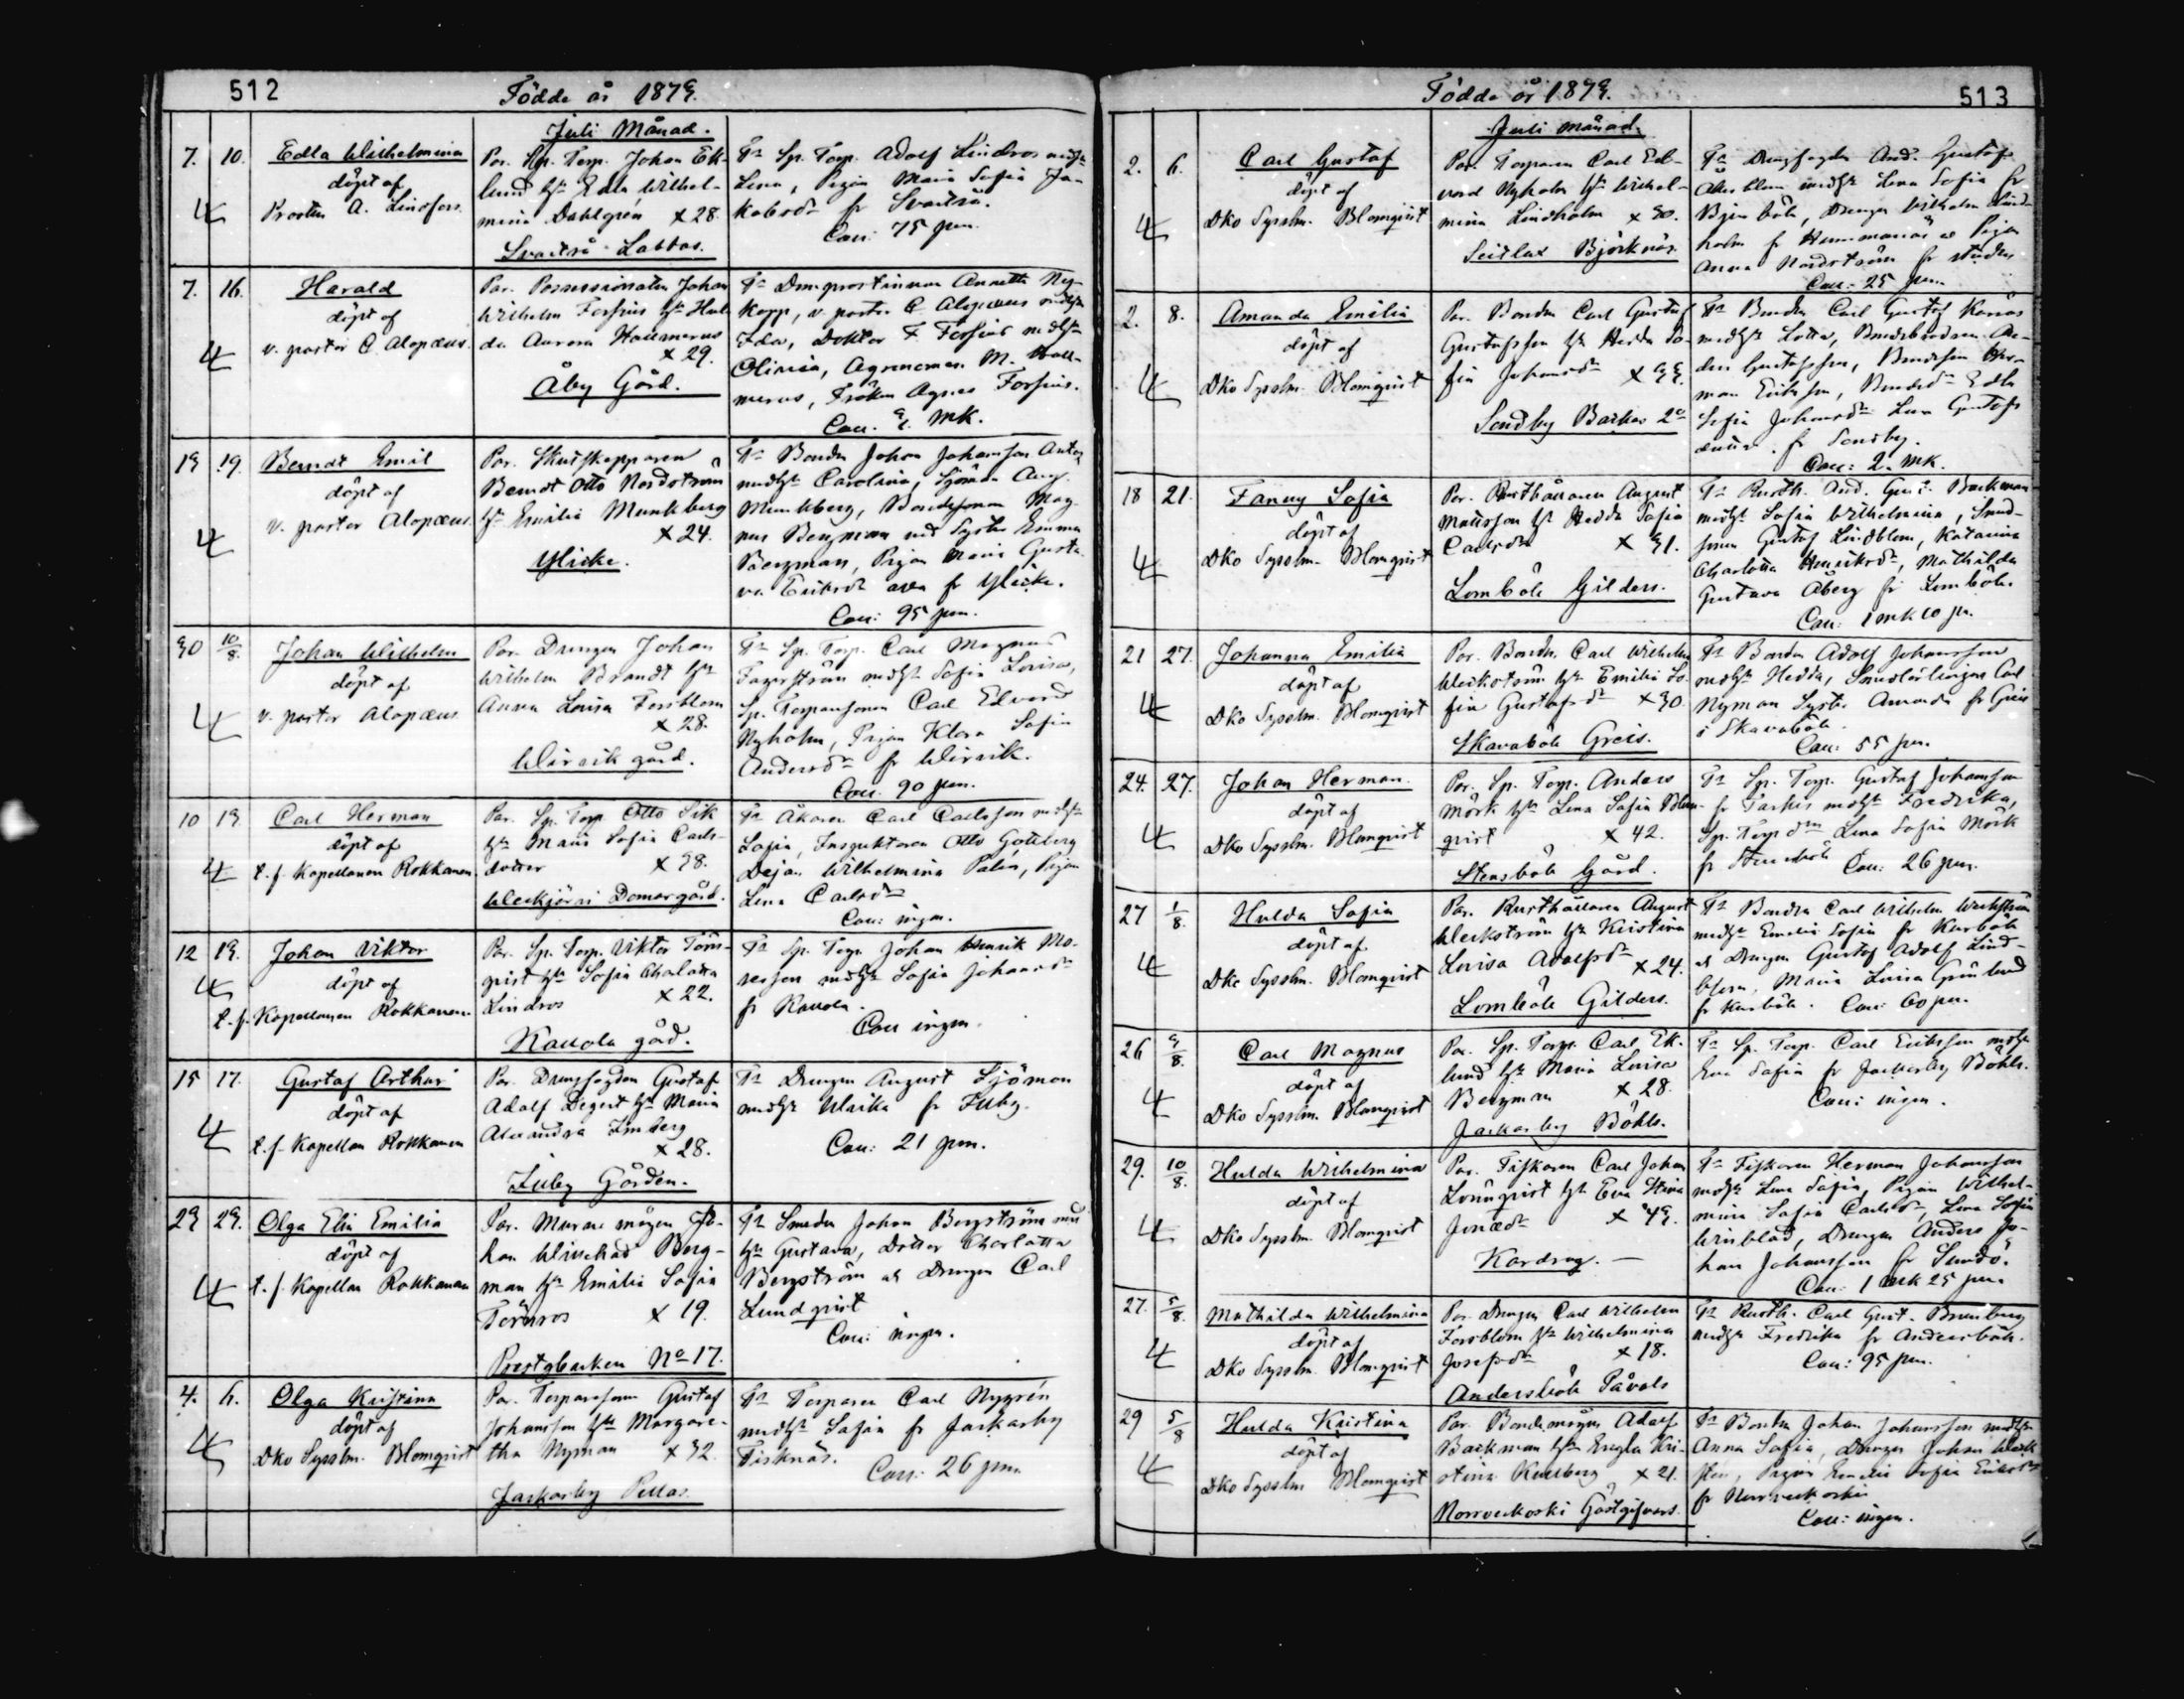 512
Födde år 1879.
Juli Månad.
7. 10. Edla Wilhelmina
döpt af
Prosten A. Lindfors.
Par. Sp. Torp. Johan Ek-
lund h. Edla Wilhel-
mina Dahlgrén x 28.
Svartså Labbas.
Fr Sp. Torp. Adolf Lindros
Lena, Pigan Maria Sofia Ja-
kobsdr fr Svartså.
Coll: 75 pen.
7. 16. Harald
döpt af
v. pastor C. Alopæus.
Par. Possessionaten Johan
Wilhelm Forsius h. Hul-
da Aurora
x 29.
Åby Gård.
Fr Domprostinnan Annette Ny-
kopp, v. pastor C. Alopæus
Ida, Doktor F Forsius
Olivia, Agronomen M.
Fröken Agnes Forsius.
Coll. 3 mk.
13 19. Berndt Emil
döpt af
v. pastor Alopæus.
Par. Skutskepparen
Berndt Otto Nordström
h. Emilia Munkberg
x 24.
Ylike.
Fr Bonden Johan Johansson
Carolina, Sjöman Aug.
Munkberg, Bondesonen Mag-
nus Bergman med Syster Emma
Bergman, Pigan Maria Gusta-
va Eriksdr fr Ylike.
Coll: 95 pen.
30 10/8. Johan Wilhelm
döpt af
v. pastor Alopæus
Par. Drengen Johan
Wilhelm Brandt h.
Anna Lovisa Forsblom
x 28.
Wirvik gård.
Fr Sp. Torp. Carl Magnus
Fagerström Sofia Lovisa,
Sp. Torparsonen Carl Edvard
Nyholm, Pigan Klara Sofia
Andersdr fr Wirvik.
Coll. 90 pen.
10 13. Carl Herman
döpt af
t. f. Kapellanen Rokkanen.
Par. Sp. Torp. Otto Sik
h. Maria Sofia Carls-
dotter x 38.
Weckjärvi Domargård.
Fr Åkaren Carl Carlsson
Sofia, Inspektoren Otto Gottberg
Dejan Wilhelmina Palin, Pigan
Lena Carlsdr
Coll: ingen.
12 13. Johan Viktor
döpt af
t. f. Kapellanen Rokkanen.
Par. Sp. Torp. Viktor Törn-
qvist h. Sofia Charlotta
Lindros x 22.
Kallola gård.
Fr Sp. Torp. Johan Henrik
Sofia Johansdr
fr Kallola.
Coll ingen.
15 17. Gustaf Arthur
döpt af
t. f. Kapellan Rokkanen
Par. Drengfogden Gustaf
Adolf Degert h. Maria
Alexandra Imberg
x 28.
Juby Gården.
Fr Drengen August Sjöman
Ulrika fr Juby.
Coll: 21 pen.
23 23. Olga Elin Emilia
döpt af
t. f. Kapellan Rokkanen
Par. Murare mågen Jo-
han Berg-
man h. Emilia Sofia
Törnros x 19.
Prestgbacken No 17.
Fr Smeden Johan Bergström
Gustava, Dotter Charlotta
Bergström Drengen Carl
Lundqvist
Coll: ingen.
4. 6. Olga Kristina
döpt af
Dko Sysslm. Blomqvist
Par. Torparesonen Gustaf
Johansson h. Margare-
tha Nyman x 32.
Jackarby Pellas.
Fr Torparen Carl Nygrén
Sofia fr Jackarby
Fisknäs.
Coll: 26 pen.
Födde år 1879.
513
Juli månad.
2. 6. Carl Gustaf
döpt af
Dko Sysslm. Blomqvist
Par. Torparen Carl Ed-
vard Nyholm h. Wilhel-
mina Lindholm x 30.
Seitlax Björknäs.
Fr Drengfogden And. Gustaf
Lena Sofia fr
böle, Drengen Wilhelm Lind-
holm fr Pigan
Anna Nordström fr staden
Coll: 25 pen.
2. 8. Amanda Emilia
döpt af
Dko Sysslm. Blomqvist
Par. Bonden Carl Gustaf
Gustafsson h. Hedda So-
fia Johansdr x 33.
Sondby Backas 2
Fr Bonden Carl Gustaf
Lotta,
Gustafsson, Bondeson Her-
man Eriksson, Edla
Sofia Johansdr Lena Gustafs
fr Sondby.
Coll: 2 mk.
18 21. Fanny Sofia
döpt af
Dko Sysslm. Blomqvist
Par. Rusthållaren August
Mattsson h. Hedda Sofia
Carlsdr x 31.
Lomböle Gilders.
Fr Rusth. And. Gust. Backman
Sofia Wilhelmina,
Gustaf Lindblom, Katarina
Charlotta Henriksdr, Mathilda
Gustava Åberg fr Lomböle.
Coll: 1 mk 10 pn.
21 27. Johanna Emilia
döpt af
Dko Sysslm. Blomqvist
Par. Bonden Carl Wilhelm
Weckström h. Emilia So-
fia Gustafsdr x 30.
Skavaböle Greis.
Fr Bonden Adolf Johansson
Hedda, Smedlärlingen Carl
Nyman Syster Amanda fr Greis
i Skavaböle.
Coll: 55 pen.
24. 27. Johan Herman
döpt af
Dko Sysslm. Blomqvist
Par. Sp. Torp. Anders
Mörk h. Lena Sofia Blom-
qvist x 42.
Stensböle Gård.
Fr Sp. Torp. Gustaf Johansson
Fredrika,
Sp. Torp Lena Sofia Mörk
fr Stensböle Coll: 26 pen.
27 1/8. Hulda Sofia
döpt af
Dko Sysslm. Blomqvist
Par. Rusthållaren August
Weckström h. Kristina
Lovisa Adolfsdr x 24.
Lomböle Gilders.
Fr Bonden Carl Wilhelm Weckström
Emelie Sofia fr
Drengen Gustaf Adolf Lind-
blom, Maria Lovisa Grönlund
Coll: 60 pn.
26 3/8. Carl Magnus
döpt af
Dko Sysslm. Blomqvist
Par. Sp. Torp. Carl Ek-
lund h. Maria Lovisa
Bergman x 28.
Jackarby Böhls.
Fr Sp. Torp. Carl Eriksson
Eva Sofia fr Jackarby Böhls.
Coll: ingen.
29. 10/8. Hulda Wilhelmina
döpt af
Dko Sysslm. Blomqvist
Par. Fiskaren Carl Johan
Lönnqvist h. Eva Stina
x 43.
Kardrag. —
Fr Fiskaren Herman Johansson
Lena Sofia, Pigan Wilhel-
mina Sofia Carlsdr, Lena Sofia
Winblad, Drengen Anders Jo-
han Johansson fr Sundö.
Coll: 1 mk 25 pen.
27. 5/8. Mathilda Wilhelmina
döpt af
Dko Sysslm. Blomqvist
Par. Drengen Carl Wilhelm
Forsblom h. Wilhelmina
Josefsdr x 18.
Andersböle Påvals
Fr Rusth. Carl Gust. Brunberg
Fredrika fr Andersböle.
Coll: 95 pen.
29 5/8 Hulda Kristina
döpt af
Dko Sysslm Blomqvist
Par. Bondemågen Adolf
Backman h. Engla Kri-
stina Kullberg x 21.
Norrveckoski Gästgifvars.
Fr Bonden Johan Johansson
Anna Sofia, Drengen Johan
Pigan Emelie Sofia Eriksdr
fr Norrveckoski
Coll: ingen.